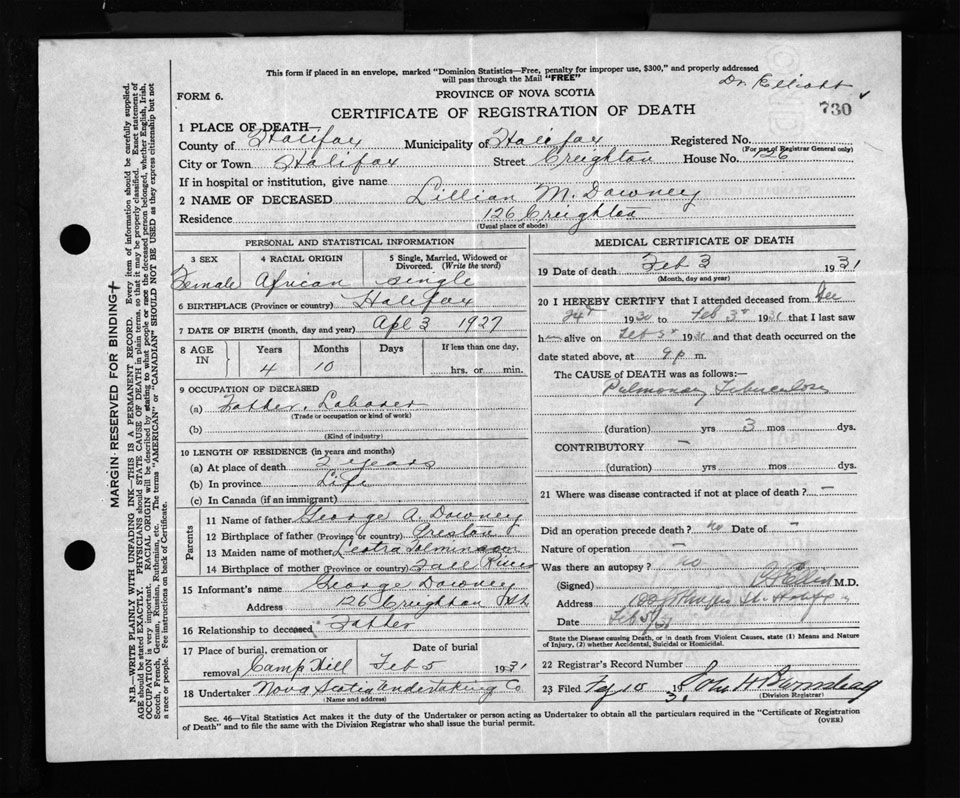 This form if placed in an envelope, marked "Dominion Statistics—Free, penalty for improper use, $300," and properly addressed
will pass through the Mail "FREE"
Dr. Elliott
FORM 6.
PROVINCE OF NOVA SCOTIA
730
CERTIFICATE OF REGISTRATION OF DEATH
1 PLACE OF DEATH—
County of Halifax Municipality of Halifax Registered No.
(For use of Registrar General only)
City or Town Halifax Street Creighton House No. 126
If in hospital or institution, give name
2 NAME OF DECEASED Lillian M. Downey
Residence 126 Creighton
(Usual place of abode)
PERSONAL AND STATISTICAL INFORMATION
3 SEX 4 RACIAL ORIGIN 5 Single, Married, Widowed or Divorced. (Write the word)
Female African single
6 BIRTHPLACE (Province or country) Halifax
7 DATE OF BIRTH (month, day and year) Apl 3 1927
8 AGE IN Years Months Days If less than one day,
4 10 hrs. or min.
9 OCCUPATION OF DECEASED
(a) Father, Laborer
(Trade or occupation or kind of work)
(b)
(Kind of industry)
10 LENGTH OF RESIDENCE (in years and months)
(a) At place of death 2 years
(b) In province Life
(c) In Canada (if an immigrant)
Parents
11 Name of father George A. Downey
12 Birthplace of father (Province or country) Preston
13 Maiden name of mother
14 Birthplace of mother (Province or country) Fall River
15 Informant's name George Downey
Address 126 Creighton St
16 Relationship to deceased Father
17 Place of burial, cremation or removal Date of burial
Camp Hill Feb 5 1931
18 Undertaker Nova Scotia Undertaking Co
(Name and address)
MEDICAL CERTIFICATE OF DEATH
19 Date of death Feb 3 1931
(Month, day and year)
20 I HEREBY CERTIFY that I attended deceased from Dec
24th 1930 to Feb 3rd 1931 that I last saw
h alive on Feb 3rd 1931 and that death occurred on the
date stated above, at 9 p m.
The CAUSE of DEATH was as follows:—
Pulmonary Tuberculosis
(duration) yrs 3 mos dys.
CONTRIBUTORY —
(duration) yrs mos dys.
21 Where was disease contracted if not at place of death? —
Did an operation precede death? no Date of —
Nature of operation —
Was there an autopsy? no
(Signed) M.D.
Address St. Halifax
Date Feb 5/31
State the Disease causing Death, or in death from Violent Causes, state (1) Means and Nature
of Injury, (2) whether Accidental, Suicidal or Homicidal.
22 Registrar's Record Number
23 Filed Feb 10 1931
(Division Registrar)
Sec. 46—Vital Statistics Act makes it the duty of the Undertaker or person acting as Undertaker to obtain all the particulars required in the "Certificate of Registration
of Death" and to file the same with the Division Registrar who shall issue the burial permit.
(OVER)
MARGIN RESERVED FOR BINDING
N.B.—WRITE PLAINLY WITH UNFADING INK—THIS IS A PERMANENT RECORD. Every item of information should be carefully supplied.
AGE should be stated EXACTLY. PHYSICIANS should STATE CAUSE OF DEATH in plain terms, so that it may be properly classified. Exact statement of
OCCUPATION is very important. RACIAL ORIGIN will be described by stating to what people or race the deceased person belonged, whether English, Irish,
Scotch, French, German, Russian, Ruthenian, etc. The terms "AMERICAN" or "CANADIAN" SHOULD NOT BE USED as they express citizenship but not
a race or people. Fee instructions on back of Certificate.